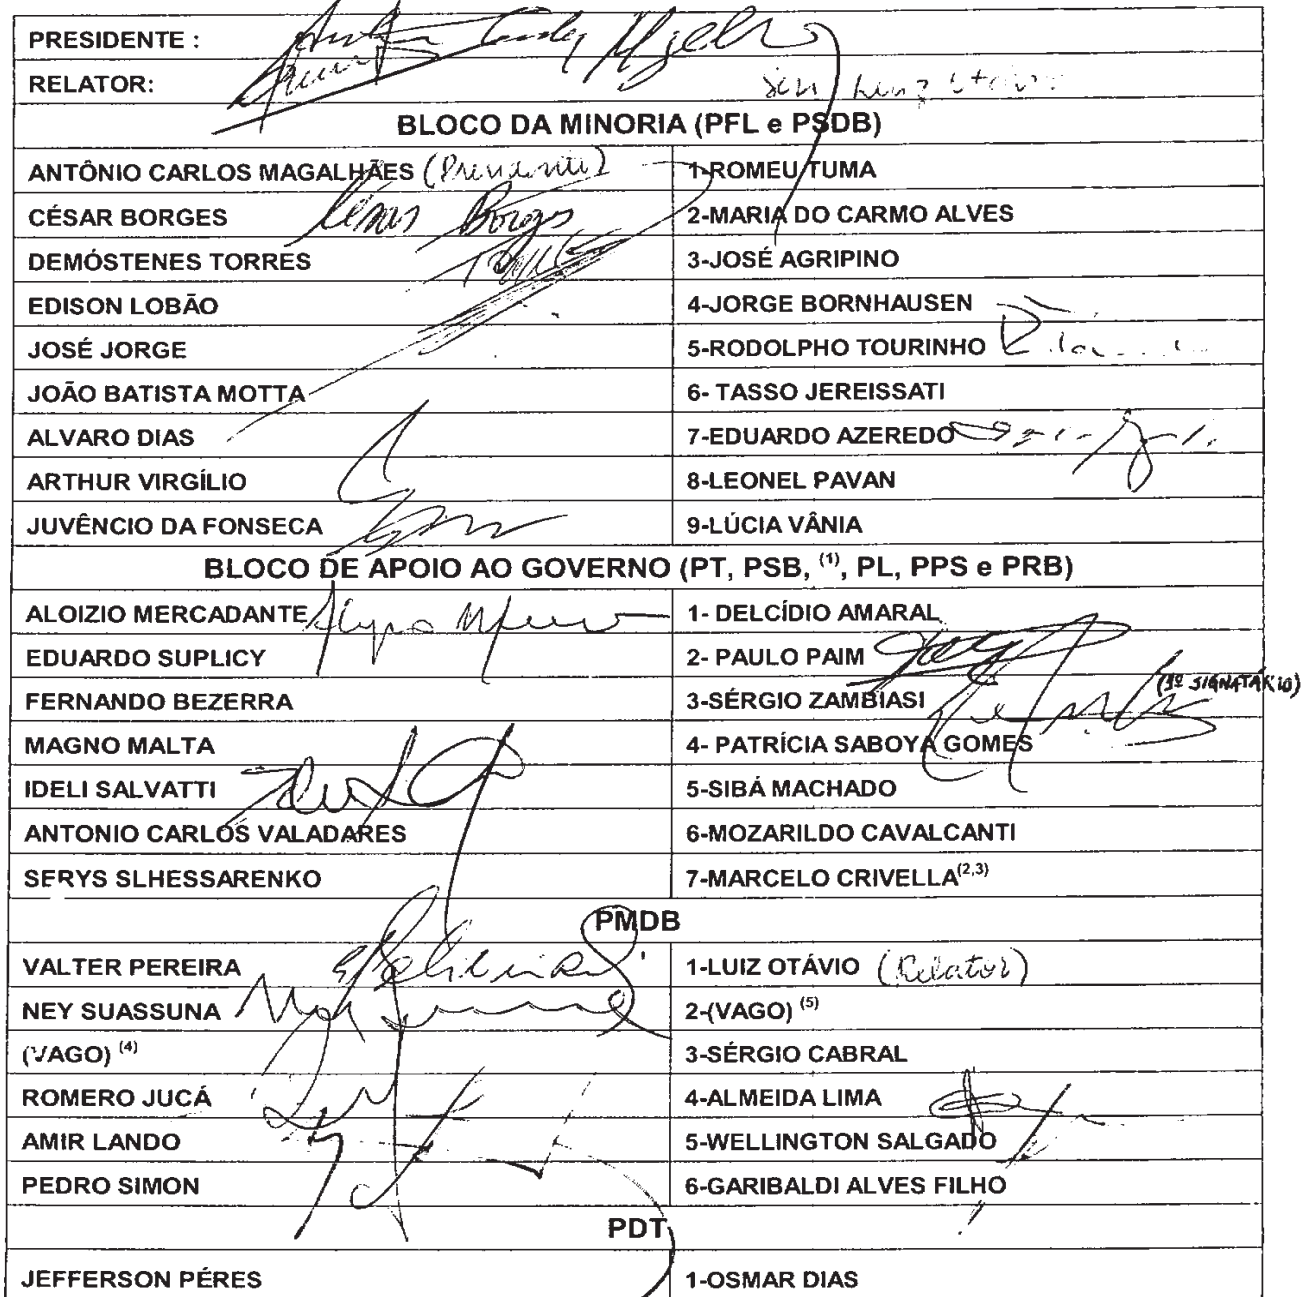 PRESIDENTE :
RELATOR:
BLOCO DA MINORIA (PFL e PSDB)
ANTÔNIO CARLOS MAGALHÃES (Presidente) 1-ROMEU TUMA
CÉSAR BORGES César Borges 2-MARIA DO CARMO ALVES
DEMÓSTENES TORRES 3-JOSÉ AGRIPINO
EDISON LOBÃO 4-JORGE BORNHAUSEN
JOSÉ JORGE 5-RODOLPHO TOURINHO
JOÃO BATISTA MOTTA 6- TASSO JEREISSATI
ALVARO DIAS 7-EDUARDO AZEREDO
ARTHUR VIRGÍLIO 8-LEONEL PAVAN
JUVÊNCIO DA FONSECA 9-LÚCIA VÂNIA
BLOCO DE APOIO AO GOVERNO (PT, PSB, (1), PL, PPS e PRB)
ALOIZIO MERCADANTE 1- DELCÍDIO AMARAL
EDUARDO SUPLICY 2- PAULO PAIM
FERNANDO BEZERRA 3-SÉRGIO ZAMBIASI (1º SIGNATÁRIO)
MAGNO MALTA 4- PATRÍCIA SABOYA GOMES
IDELI SALVATTI 5-SIBÁ MACHADO
ANTONIO CARLOS VALADARES 6-MOZARILDO CAVALCANTI
SERYS SLHESSARENKO 7-MARCELO CRIVELLA(2,3)
PMDB
VALTER PEREIRA 1-LUIZ OTÁVIO (Relator)
NEY SUASSUNA 2-(VAGO) (5)
(VAGO) (4) 3-SÉRGIO CABRAL
ROMERO JUCÁ 4-ALMEIDA LIMA
AMIR LANDO 5-WELLINGTON SALGADO
PEDRO SIMON 6-GARIBALDI ALVES FILHO
PDT
JEFFERSON PÉRES 1-OSMAR DIAS